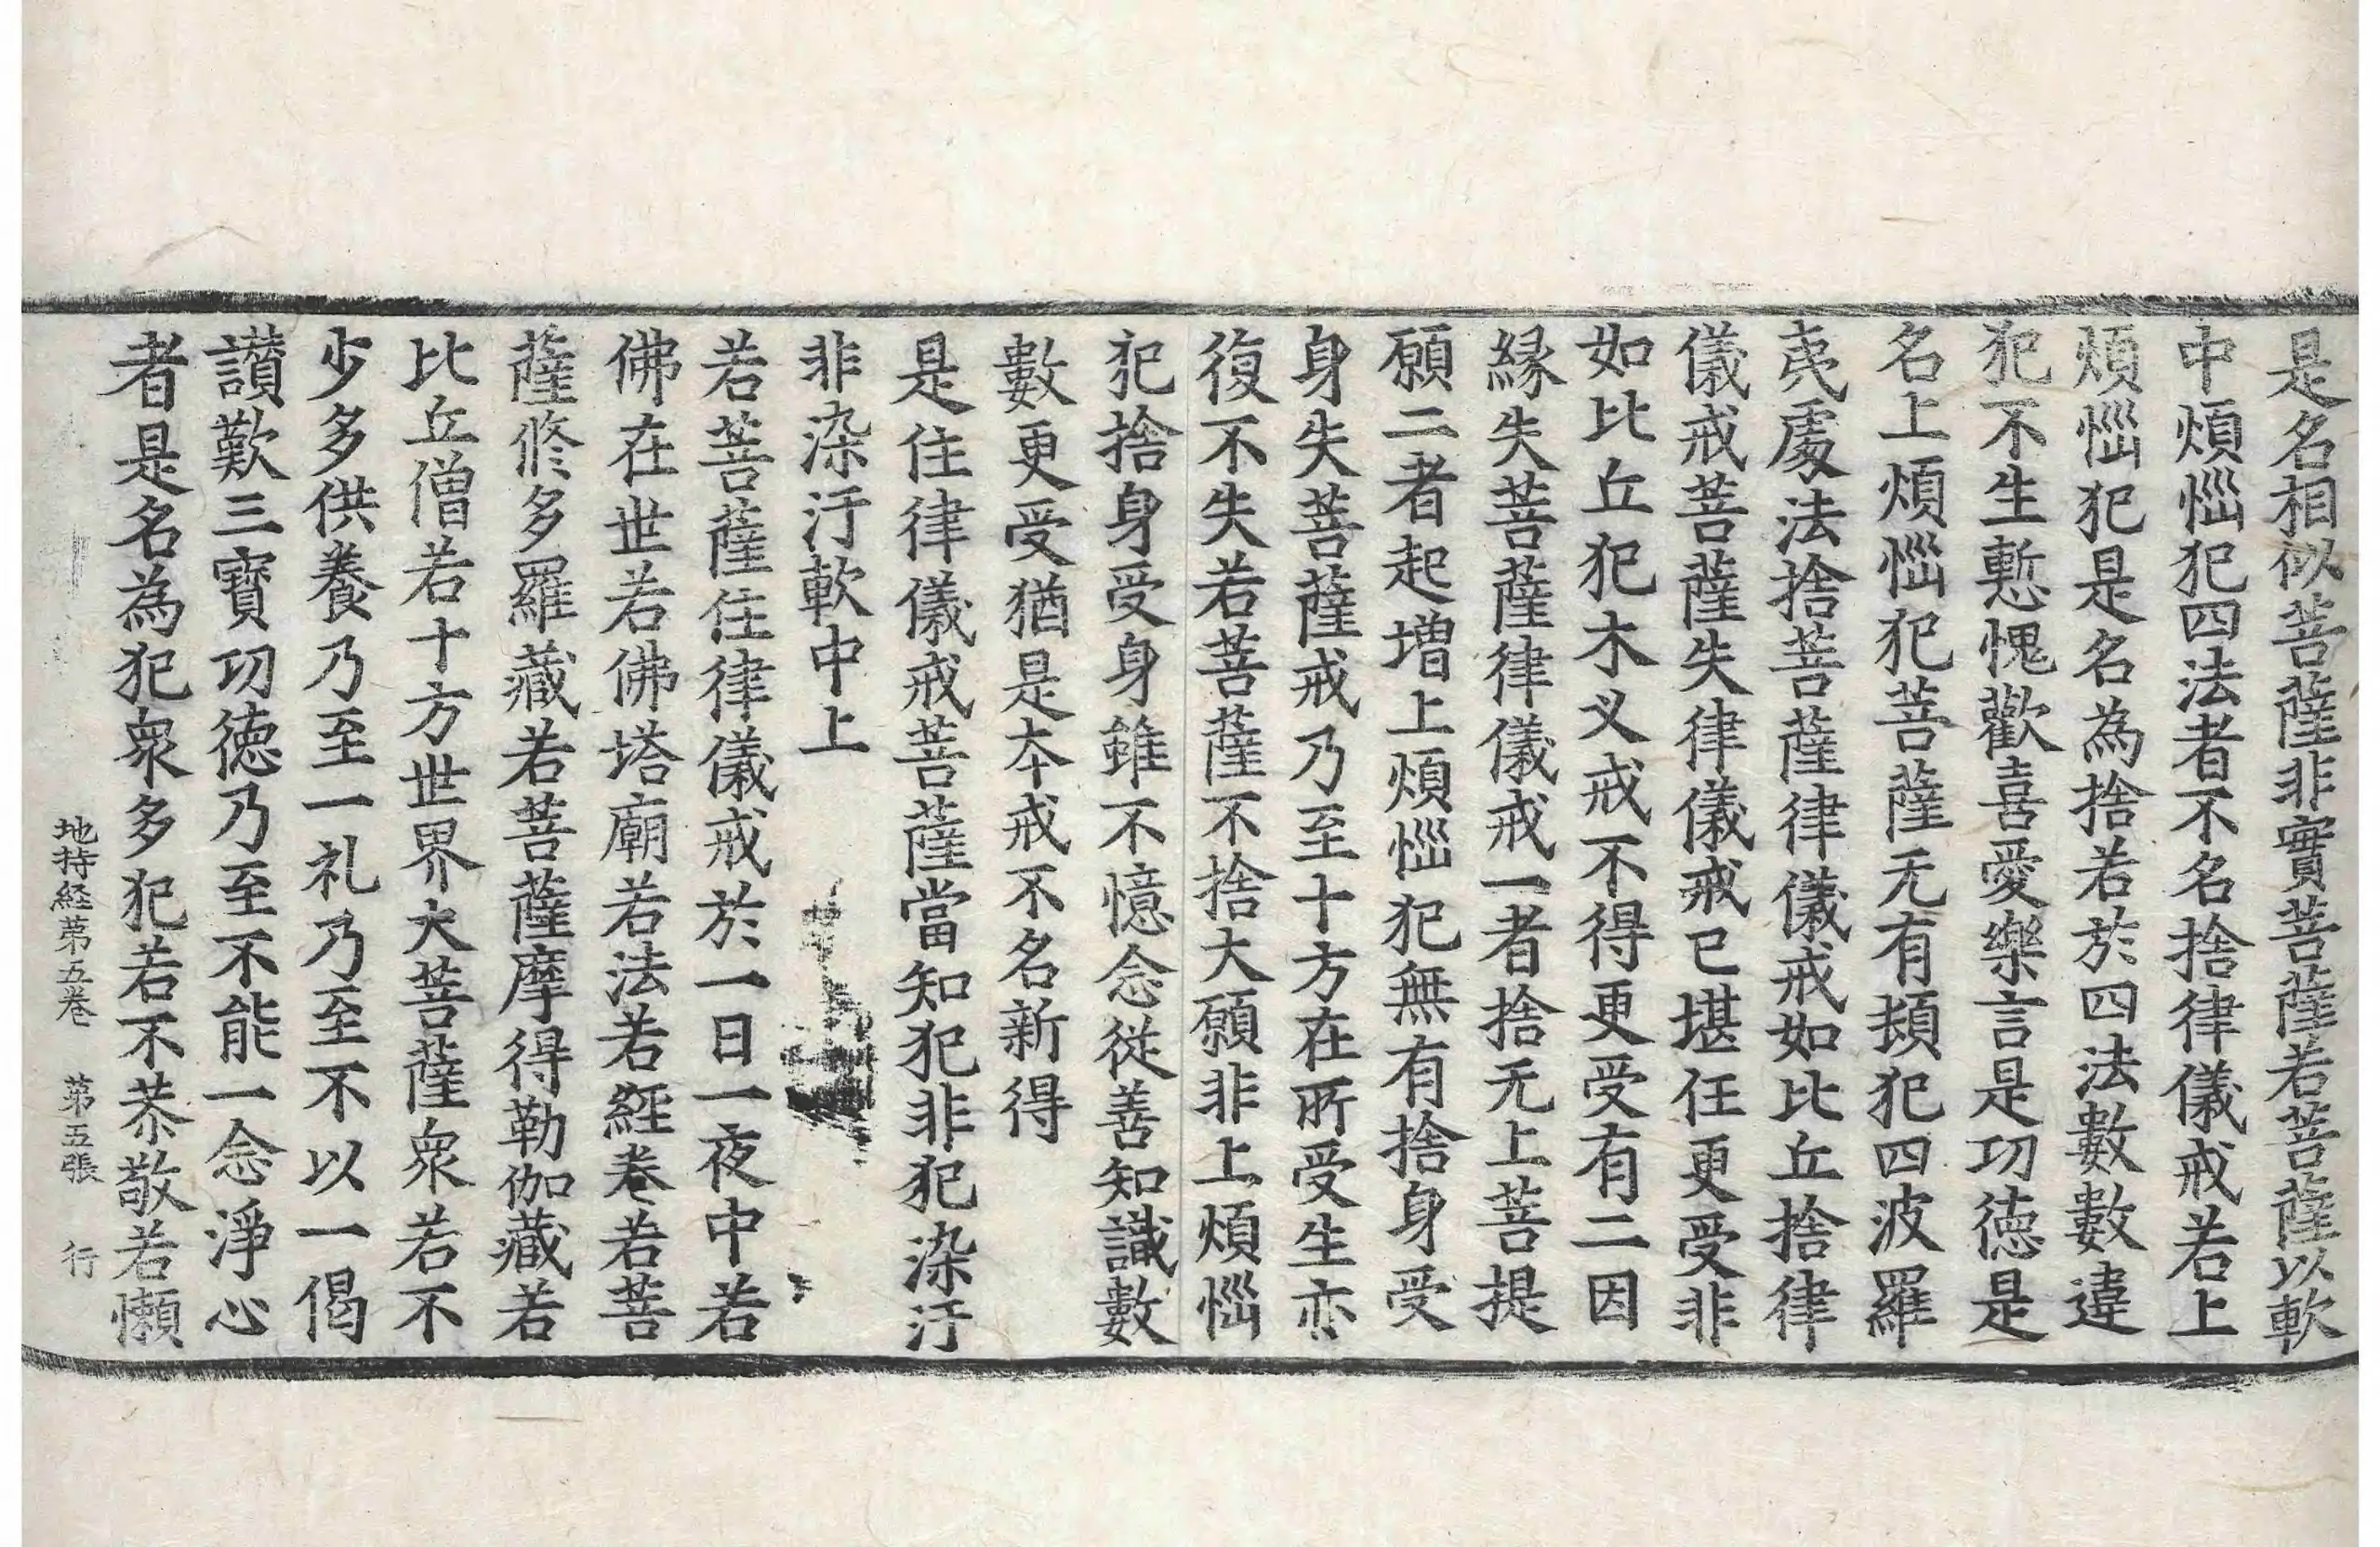 是名相似菩薩非實菩薩若菩薩以軟
中煩惱犯四法者不名捨律儀戒若上
煩惱犯是名為捨若於四法數數違
犯不生慙愧歡喜愛樂言是功徳是
名上煩惱犯菩薩无有頓犯四波羅
夷處法捨菩薩律儀戒如比丘捨律
儀戒菩薩失律儀戒已堪任更受非
如比丘犯木叉戒不得更受有二因
縁失菩薩律儀戒一者捨无上菩提
願二者起增上煩惱犯無有捨身受
身失菩薩戒乃至十方在所受生亦
復不失若菩薩不捨大願非上煩惱
犯捨身受身雖不憶念從善知識數
數更受猶是本戒不名新得
是住律儀戒菩薩當知犯非犯染汙
非染汙軟中上
若菩薩住律儀戒於一日一夜中若
佛在世若佛塔廟若法若經卷若菩
薩修多羅藏若菩薩摩得勒伽藏若
比丘僧若十方世界大菩薩衆若不
少多供養乃至一礼乃至不以一偈
讃歎三寳功徳乃至不能一念淨心
者是名為犯衆多犯若不恭敬若懶
地持経第五巻 第五張 行